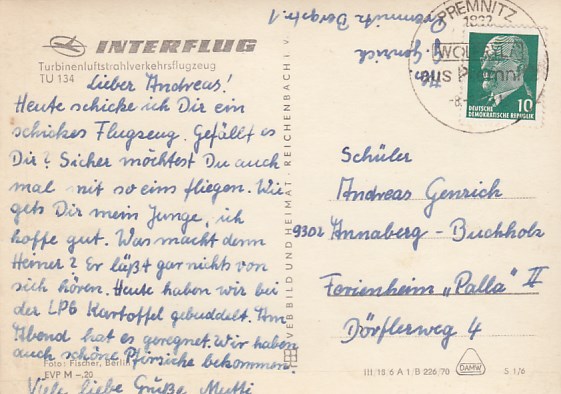 INTERFLUG
Turbinenluftstrahlverkehrsflugzeug
TU 134
Lieber Andreas!
Heute schicke ich Dir ein
schickes Flugzeug. Gefällt es
Dir? Sicher möchtest Du auch
mal mit so eins fliegen. Wie
gets Dir mein Junge, ich
hoffe gut. Was macht denn
Heiner? Er läßt gar nichts von
sich hören. Heute haben wir bei
der LPG Kartoffel gebuddelt. Am
Abend hat es geregnet. Wir haben
auch schöne Pfirsiche bekommen.
Viele liebe Grüße Mutti
Foto: Fischer, Berlin
EVP M –.20
VEB BILD UND HEIMAT · REICHENBACH I. V.
Genrich
Premnitz Bergstr. 1
PREMNITZ
aus Premnitz
10
DEUTSCHE
DEMOKRATISCHE REPUBLIK
Schüler
Andreas Genrich
9302 Annaberg - Buchholz
Ferienheim „Palla" II
Dörflerweg 4
III/18/6 A 1 B 226/70
DAMW
S 1/6